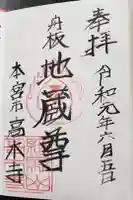 奉拝
令和元年六月五日
舟板
地蔵尊
本宮市
高木寺